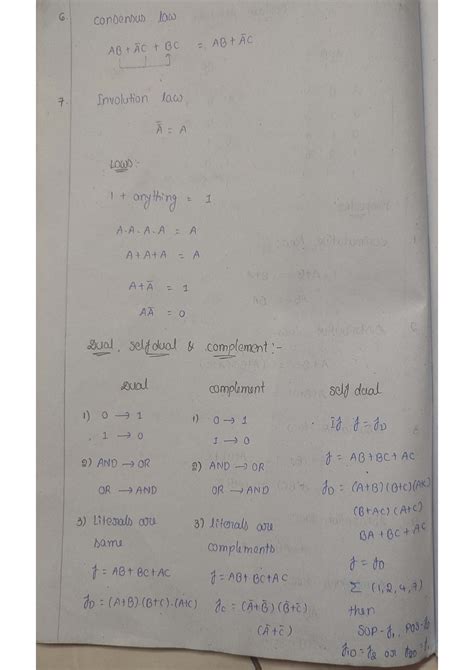 6. consensus law
AB + A̅C + BC = AB + A̅C
7. Involution law
A̿ = A
Laws:
1 + anything = 1
A.A.A.A = A
A+A+A = A
A+A̅ = 1
AA̅ = 0
Dual, self dual & complement:-
Dual
1) 0 → 1
1 → 0
2) AND → OR
OR → AND
3) literals are
same
f = AB+BC+AC
fD = (A+B)(B+C).(A+C)
complement
1) 0 → 1
1 → 0
2) AND → OR
OR → AND
3) literals are
complements
f = AB+BC+AC
fC = (A̅+B̅)(B̅+C̅)
(A̅+C̅)
self dual
If f = fD
f = AB+BC+AC
fD = (A+B)(B+C)(A+C)
(B+AC)(A+C)
BA+BC+AC
f = fD
Σ (1,2,4,7)
then
SOP-f1, POS-f2